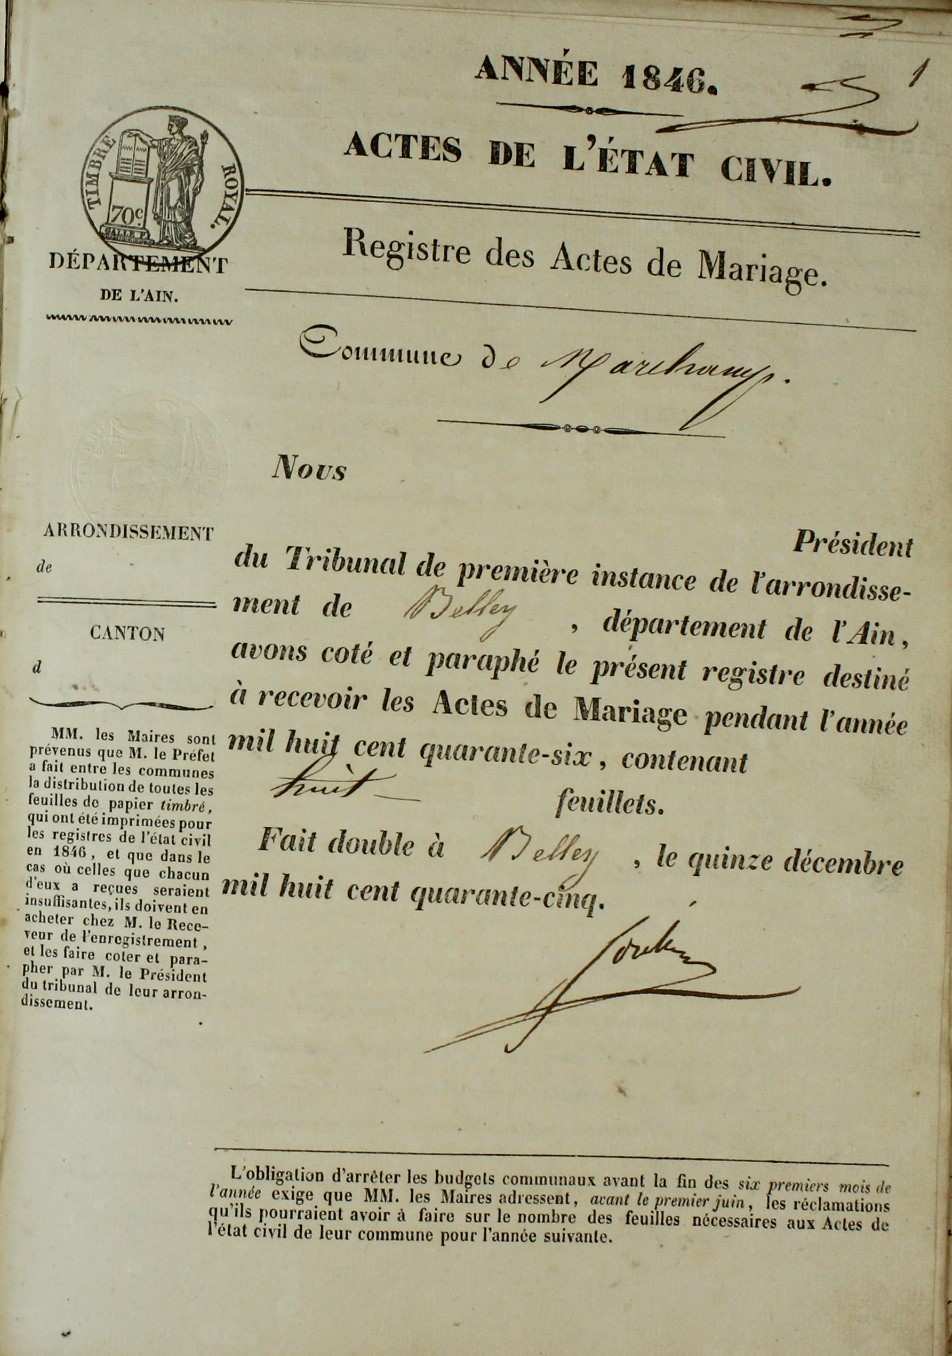 1
ANNÉE 1846.
ACTES DE L'ÉTAT CIVIL.
TIMBRE ROYAL.
70c
DÉPARTEMENT
DE L'AIN.
Registre des Actes de Mariage.
Commune de Marchamp.
Nous
Président
du Tribunal de première instance de l'arrondisse-
ment de Belley, département de l'Ain,
avons coté et paraphé le présent registre destiné
à recevoir les Actes de Mariage pendant l'année
mil huit cent quarante-six, contenant
huit feuillets.
Fait double à Belley, le quinze décembre
mil huit cent quarante-cinq.
ARRONDISSEMENT
de
CANTON
d
MM. les Maires sont
prévenus que M. le Préfet
a fait entre les communes
la distribution de toutes les
feuilles de papier timbré,
qui ont été imprimées pour
les registres de l'état civil
en 1846, et que dans le
cas où celles que chacun
d'eux a reçues seraient
insuffisantes, ils doivent en
acheter chez M. le Rece-
veur de l'enregistrement,
et les faire coter et para-
pher par M. le Président
du tribunal de leur arron-
dissement.
L'obligation d'arrêter les budgets communaux avant la fin des six premiers mois de
l'année exige que MM. les Maires adressent, avant le premier juin, les réclamations
qu'ils pourraient avoir à faire sur le nombre des feuilles nécessaires aux Actes de
l'état civil de leur commune pour l'année suivante.